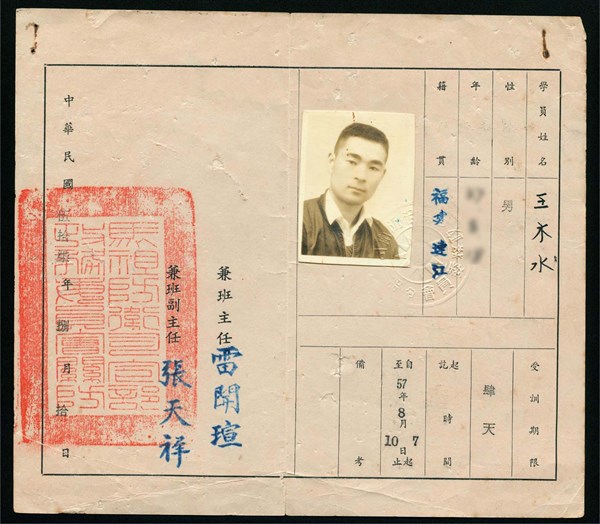 学員姓名
王木水
性別
男
年齡
籍貫
福建連江
受訓期限
肆天
起訖時間
自至57年8月7 10日起止
備考
兼班主任 雷開瑄
兼班副主任 張天祥
中華民國伍拾柒年捌月拾日